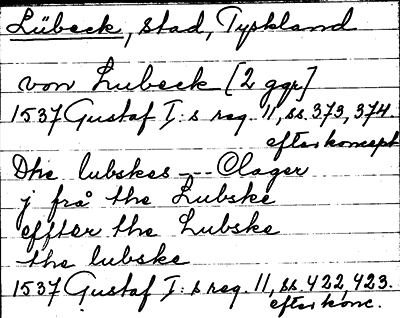 Lübeck, stad, Tyskland
von Lubeck [2 ggr]
1537 Gustaf I:s reg. 11, ss. 373, 374.
efter koncept
Dhe lubskes --- Olager
j frå the Lubske
effter the Lubske
the lubske
1537 Gustaf I:s reg. 11, ss. 422, 423.
efter konc.